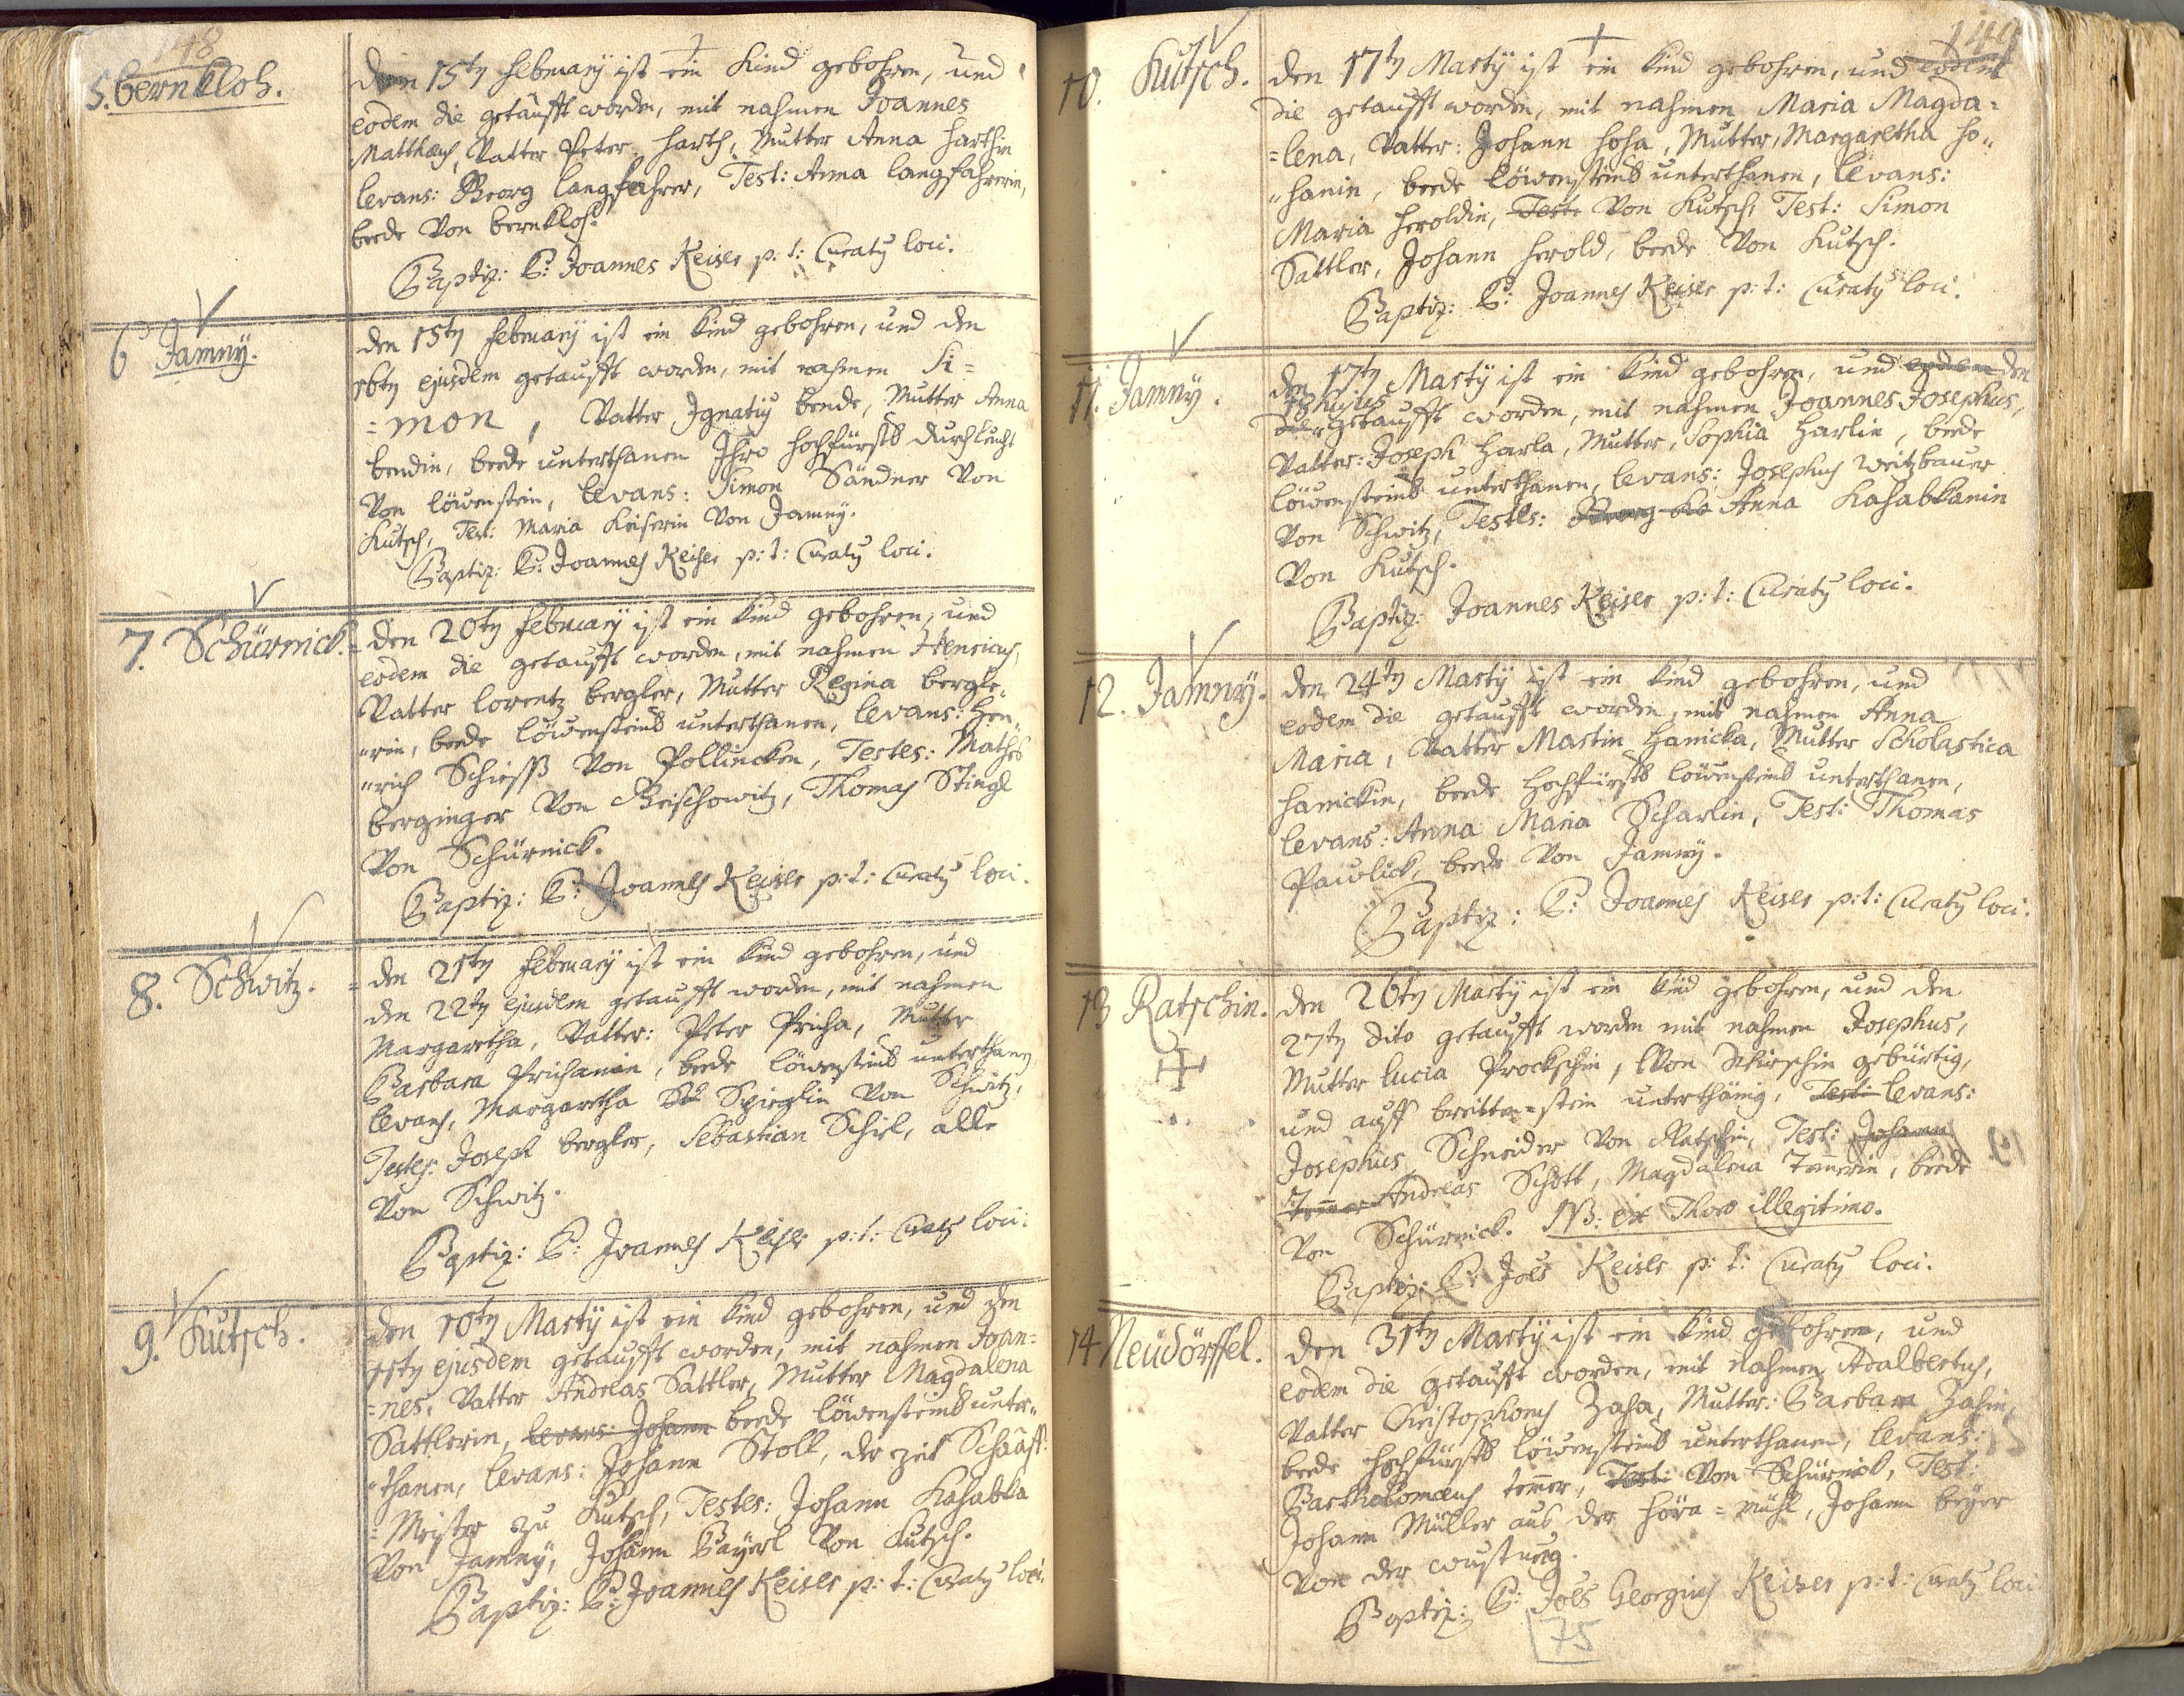 148
5. bernkloh.
Den 15ty Februarÿ ist ein Kind gebohren, und
eodem die getaufft worden, mit nahmen Joannes
Matthæus, Vatter Peter Harth, Mutter Anna Harthin
levans: Georg Langfahrer, Test: Anna Langfahrerin,
beede Von bernkloh.
Baptiz: P: Joannes Keiser p: t: Curatus loci.
6 Jamnÿ.
den 15ty Februarÿ ist ein Kind gebohren, und den
16ty ejusdem getaufft worden, mit nahmen Si=
=mon, Vatter Ignatius bende, Mutter Anna
bendin, beede unterthanen Ihro Hochfürstl Durchleucht
Von löwenstein, levans: Simon Sandner Von
Kutsch, Test: Maria Keiserin Von Jamnÿ.
Baptiz: P: Joannes Keiser p: t: Curatus loci.
7. Schürnick.
den 20ty Februarÿ ist ein Kind gebohren, und
eodem die getaufft worden, mit nahmen Henricus,
Vatter Lorentz bergler, Mutter Regina bergle„
„rin, beede löwensteins unterthanen, levans: Hen„
„rich Schieß Von Pollincken, Testes: Mathes
berginger Von Geischowitz, Thomas Stingl
Von Schürnick.
Baptiz: P: Joannes Keiser p: t: Curatus loci.
8. Schwitz.
den 21ty Februarÿ ist ein Kind gebohren, und
den 22ty ejusdem getaufft worden, mit nahmen
Margaretha, Vatter: Peter Pricha, Mutter
Barbara Prichanin, beede löwensteins unterthanen
levans, Margaretha Spieglin Von Schwitz,
Testes: Joseph bergler, Sebastian Schiel, alle
Von Schwitz.
Baptiz: P: Joannes Keiser p: t: Curatus loci.
9. Kutsch.
den 10ty Martÿ ist ein Kind gebohren, und den
11ty ejusdem getaufft worden, mit nahmen Joan=
=nes, Vatter Andreas Sattler, Mutter Magdalena
Sattlerin, levans: Johann beede löwensteins unter„
„thanen, levans: Johann Stoll, der zeit Schaaff=
=Meister zu Kutsch, Testes: Johann Kahabka
Von Jamnÿ, Johann Baÿerl Von Kutsch.
Baptiz: P: Joannes Keiser p: t: Curatus loci.
149
10. Kutsch.
den 17ty Martÿ ist ein Kind gebohren, und eodem
die getaufft worden, mit nahmen Maria Magda=
=lena, Vatter: Johann Hoha, Mutter, Margaretha Ho„
„hanin, beede löwensteins unterthanen, levans:
Maria Heroldin, Test: Von Kutsch, Test: Simon
Sattler, Johann Herold, beede Von Kutsch.
Baptiz: P: Joannes Keiser p: t: Curatus loci.
11. Jamny.
den 17ty Martÿ ist ein Kind gebohren, und eodem den
18 hujus
die getaufft worden, mit nahmen Joannes Josephus,
Vatter: Joseph Harla, Mutter, Sophia Harlin, beede
löwensteins unterthanen, levans: Josephus Weitzbauer
Von Schwitz, Testes: Georg Anna Kahabkanin
Von Kutsch.
Baptiz: Joannes Keiser p: t: Curatus loci.
12. Jamnÿ.
den 24ty Martÿ ist ein Kind gebohren, und
eodem die getaufft worden, mit nahmen Anna
Maria, Vatter Martin Hanicka, Mutter Scholastica
Hanickin, beede Hochfürstl löwensteins unterthanen,
levans: Anna Maria Scharlin, Test: Thomas
Pawlick, beede Von Jamnÿ.
Baptiz: P: Joannes Keiser p: t: Curatus loci.
13 Ratschin.
den 26ty Martÿ ist ein Kind gebohren, und den
27ty dito getaufft worden mit nahmen Josephus,
Mutter Lucia Prockschin, Von gebürtig,
und auff breitten=stein unterthänig, Test: levans:
Josephus Schneider Von Ratschin, Test: Johann
Andreas Schott, Magdalena Temerin, beede
Von Schürnick. NB: ex Thoro illegitimo.
Baptiz: P: Joes Keiser p: t: Curatus loci.
14 Neüdörffel.
den 31ty Martÿ ist ein Kind gebohren, und
eodem die getaufft worden, mit nahmen Adalbertus,
Vatter Christophorus Zaha, Mutter: Barbara Zahin,
beede Hochfürstl löwensteins unterthanen, levans:
Bartholomæus temer, Test: Von Schürnick, Test:
Johann Müller aus der Höra=mühl, Johann beÿer
Von der wustung.
Baptiz: P: Joes Georgius Keiser p: t: Curatus loci
75